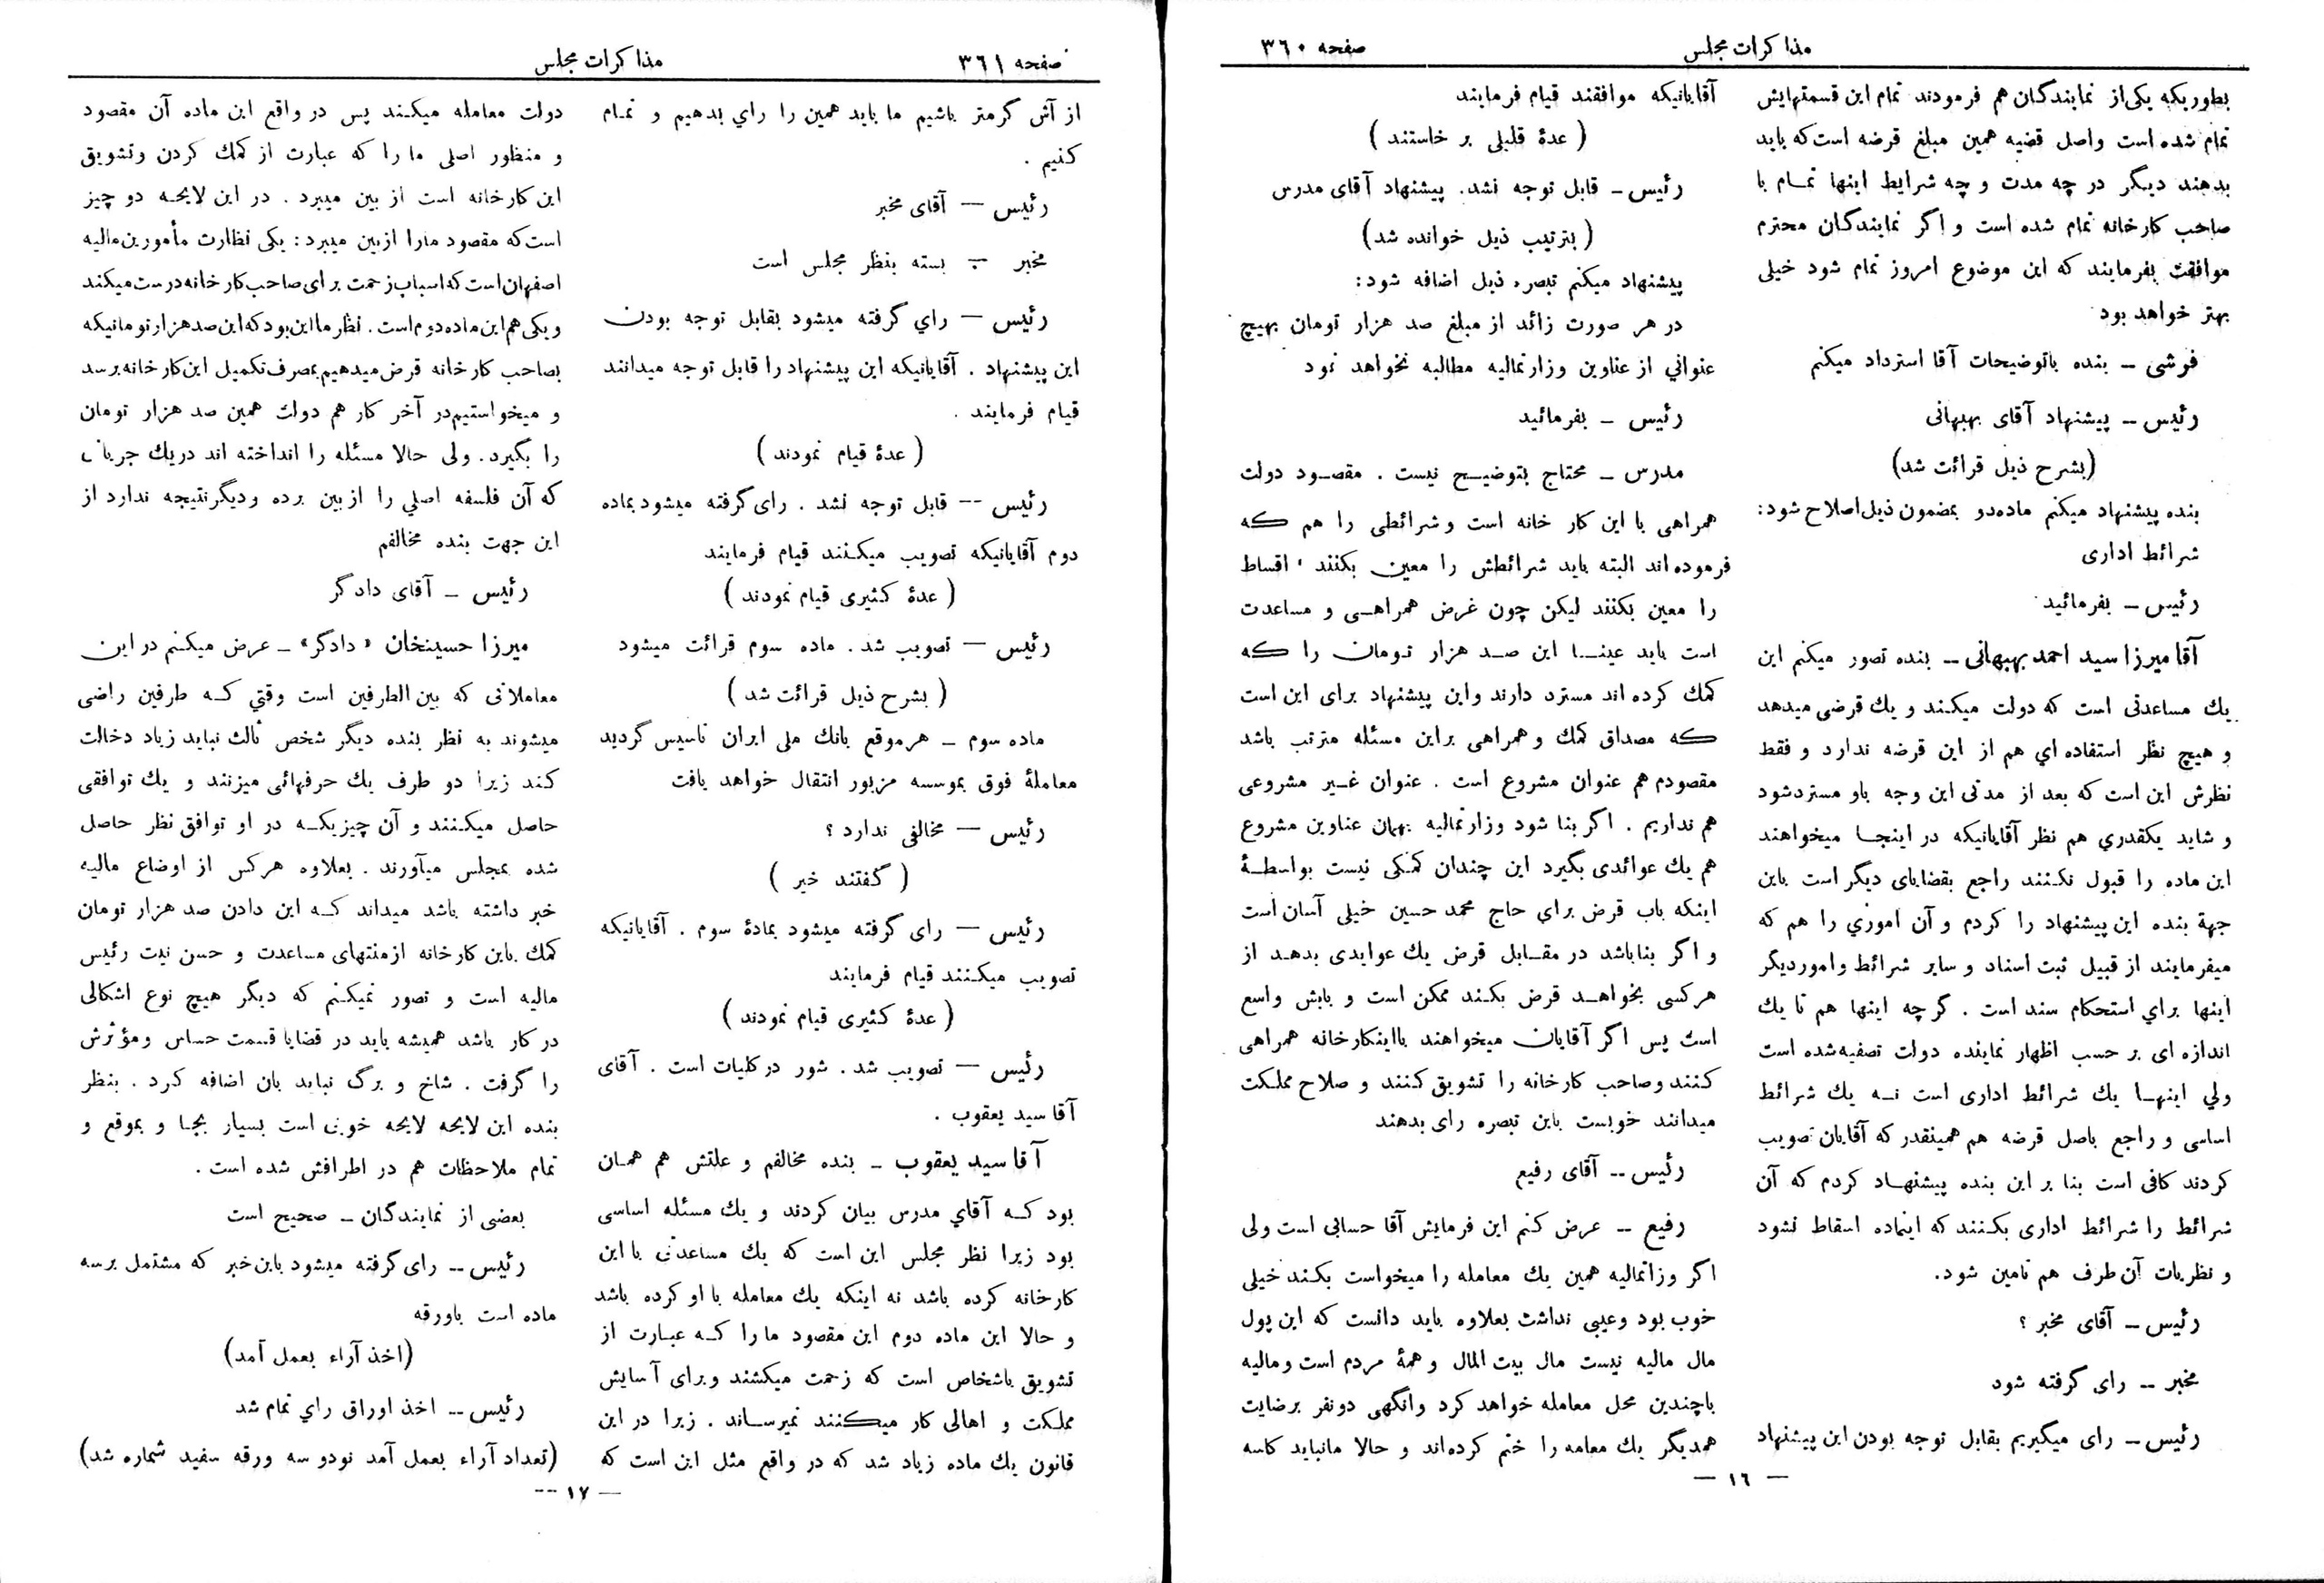 صفحه ٣٦٠
مذاکرات مجلس
بطوریکه یکی از نمایندگان هم فرمودند تمام این قسمتهایش
تمام شده است واصل قضیه همین مبلغ قرضه است که باید
بدهند دیگر در چه مدت و چه شرایط اینها تمام با
صاحب کارخانه تمام شده است و اگر نمایندگان محترم
موافقت بفرمایند که این موضوع امروز تمام شود خیلی
بهتر خواهد بود
فرشی – بنده باتوضیحات آقا استرداد میکنم
رئیس – پیشنهاد آقای بهبهانی
(بشرح ذیل قرائت شد)
بنده پیشنهاد میکنم ماده‌دو بمضمون ذیل اصلاح شود:
شرائط اداری
رئیس – بفرمائید
آقا میرزا سید احمد بهبهانی – بنده تصور میکنم این
یك مساعدتی است که دولت میکند و یك قرضی میدهد
و هیچ نظر استفاده اي هم از این قرضه ندارد و فقط
نظرش این است که بعد از مدتی این وجه باو مسترد شود
و شاید یکقدري هم نظر آقایانیکه در اینجا میخواهند
این ماده را قبول نکنند راجع بقضایای دیگر است باین
جهة بنده این پیشنهاد را کردم و آن اموري را هم که
میفرمایند از قبیل ثبت اسناد و سایر شرائط وامور دیگر
اینها براي استحکام سند است . گرچه اینها هم تا یك
اندازه ای بر حسب اظهار نماینده دولت تصفیه شده است
ولي اینها یك شرائط اداری است نه یك شرائط
اساسی و راجع باصل قرضه هم همینقدر که آقایان تصویب
کردند کافی است بنا بر این بنده پیشنهاد کردم که آن
شرائط را شرائط اداری بکنند که اینماده اسقاط نشود
و نظریات آن طرف هم تامین شود.
رئیس – آقای مخبر ؟
مخبر – رای گرفته شود
رئیس – رای میگیریم بقابل توجه بودن این پیشنهاد
آقایانیکه موافقند قیام فرمایند
( عدهٔ قلیلی بر خاستند )
رئیس – قابل توجه نشد. پیشنهاد آقای مدرس
( بترتیب ذیل خوانده شد)
پیشنهاد میکنم تبصره ذیل اضافه شود:
در هر صورت زائد از مبلغ صد هزار تومان بهیچ
عنواني از عناوین وزارتمالیه مطالبه نخواهد نمود
رئیس – بفرمائید
مدرس – محتاج بتوضیح نیست . مقصود دولت
همراهی با این کار خانه است وشرائطی را هم که
فرموده‌اند البته باید شرائطش را معین بکنند ، اقساط
را معین بکنند لیکن چون غرض همراهی و مساعدت
است باید عینا این صد هزار تومان را که
کمك کرده اند مسترد دارند واین پیشنهاد برای این است
که مصداق کمك و همراهی براین مسئله مترتب باشد
مقصودم هم عنوان مشروع است . عنوان غیر مشروعی
هم نداریم . اگر بنا شود وزارتمالیه بهمان عناوین مشروع
هم یك عوائدی بگیرد این چندان کمکی نیست بواسطهٔ
اینکه باب قرض براي حاج محمد حسین خیلی آسان است
و اگر بناباشد در مقابل قرض یك عوایدی بدهد از
هرکسی بخواهد قرض بکند ممکن است و بابش واسع
است پس اگر آقایان میخواهند بااینکارخانه همراهی
کنند وصاحب کارخانه را تشویق کنند و صلاح مملکت
میدانند خوبست باین تبصره رای بدهند
رئیس – آقای رفیع
رفیع – عرض کنم این فرمایش آقا حسابی است ولی
اگر وزاتمالیه همین یك معامله را میخواست بکند خیلی
خوب بود وعیبی نداشت بعلاوه باید دانست که این پول
مال مالیه نیست مال بیت المال و همهٔ مردم است ومالیه
باچندین محل معامله خواهد کرد وانگهی دونفر برضایت
همدیگر یك معامه را ختم کرده‌اند و حالا مانباید کاسه
— ١٦ —
صفحه ٣٦١
مذاکرات مجلس
از آش گرمتر باشیم ما باید همین را راي بدهیم و تمام
کنیم .
رئیس — آقای مخبر
مخبر – بسته بنظر مجلس است
رئیس — راي گرفته میشود بقابل توجه بودن
این پیشنهاد . آقایانیکه این پیشنهاد را قابل توجه میدانند
قیام فرمایند .
( عدهٔ قیام نمودند )
رئیس -- قابل توجه نشد . رای گرفته میشود بماده
دوم آقایانیکه تصویب میکنند قیام فرمایند
( عدهٔ کثیری قیام نمودند )
رئیس — تصویب شد . ماده سوم قرائت میشود
( بشرح ذیل قرائت شد )
ماده سوم – هرموقع بانك ملی ایران تاسیس گردید
معاملهٔ فوق بموسسه مزبور انتقال خواهد یافت
رئیس — مخالفی ندارد ؟
( گفتند خیر )
رئیس — رای گرفته میشود بمادهٔ سوم . آقایانیکه
تصویب میکنند قیام فرمایند
( عدهٔ کثیری قیام نمودند )
رئیس — تصویب شد . شور درکلیات است . آقای
آقا سید یعقوب .
آقا سید یعقوب – بنده مخالفم و علتش هم همان
بود که آقاي مدرس بیان کردند و یك مسئله اساسی
بود زیرا نظر مجلس این است که یك مساعدتی با این
کارخانه کرده باشد نه اینکه یك معامله با او کرده باشد
و حالا این ماده دوم این مقصود ما را که عبارت از
تشویق باشخاص است که زحمت میکشند وبرای آسایش
مملکت و اهالی کار میکنند نمیرساند . زیرا در این
قانون یك ماده زیاد شد که در واقع مثل این است که
دولت معامله میکند پس در واقع این ماده آن مقصود
و منظور اصلی ما را که عبارت از کمك کردن وتشویق
این کارخانه است از بین میبرد . در این لایحه دو چیز
است که مقصود مارا از بین میبرد : یکی نظارت مأمورین مالیه
اصفهان است که اسباب زحمت برای صاحب کارخانه درست میکند
و یکی هم این ماده دوم است . نظر ما این بود که این صد هزار تومانیکه
بصاحب کارخانه قرض میدهیم بمصرف تکمیل این کارخانه برسد
و میخواستیم در آخر کار هم دولت همین صد هزار تومان
را بگیرد . ولی حالا مسئله را انداخته اند دریك جریان
که آن فلسفه اصلي را از بین برده ودیگر نتیجه ندارد از
این جهت بنده مخالفم
رئیس – آقای دادگر
میرزا حسینخان «دادگر» – عرض میکنم در این
معاملاتی که بین الطرفین است وقتي که طرفین راضی
میشوند به نظر بنده دیگر شخص ثالث نباید زیاد دخالت
کند زیرا دو طرف یك حرفهائی میزنند و یك توافقی
حاصل میکنند و آن چیزیکه در او توافق نظر حاصل
شده بمجلس میآورند . بعلاوه هرکس از اوضاع مالیه
خبر داشته باشد میداند که این دادن صد هزار تومان
کمك باین کارخانه از منتهای مساعدت و حسن نیت رئیس
مالیه است و تصور نمیکنم که دیگر هیچ نوع اشکالی
در کار باشد همیشه باید در قضایا قسمت حساس ومؤثرش
را گرفت . شاخ و برگ نباید بان اضافه کرد . بنظر
بنده این لایحه لایحه خوبی است بسیار بجا و بموقع و
تمام ملاحظات هم در اطرافش شده است .
بعضی از نمایندگان – صحیح است
رئیس – رای گرفته میشود باین خبر که مشتمل برسه
ماده است باورقه
(اخذ آراء بعمل آمد)
رئیس – اخذ اوراق راي تمام شد
(تعداد آراء بعمل آمد نودو سه ورقه سفید شماره شد)
— ١٧ --